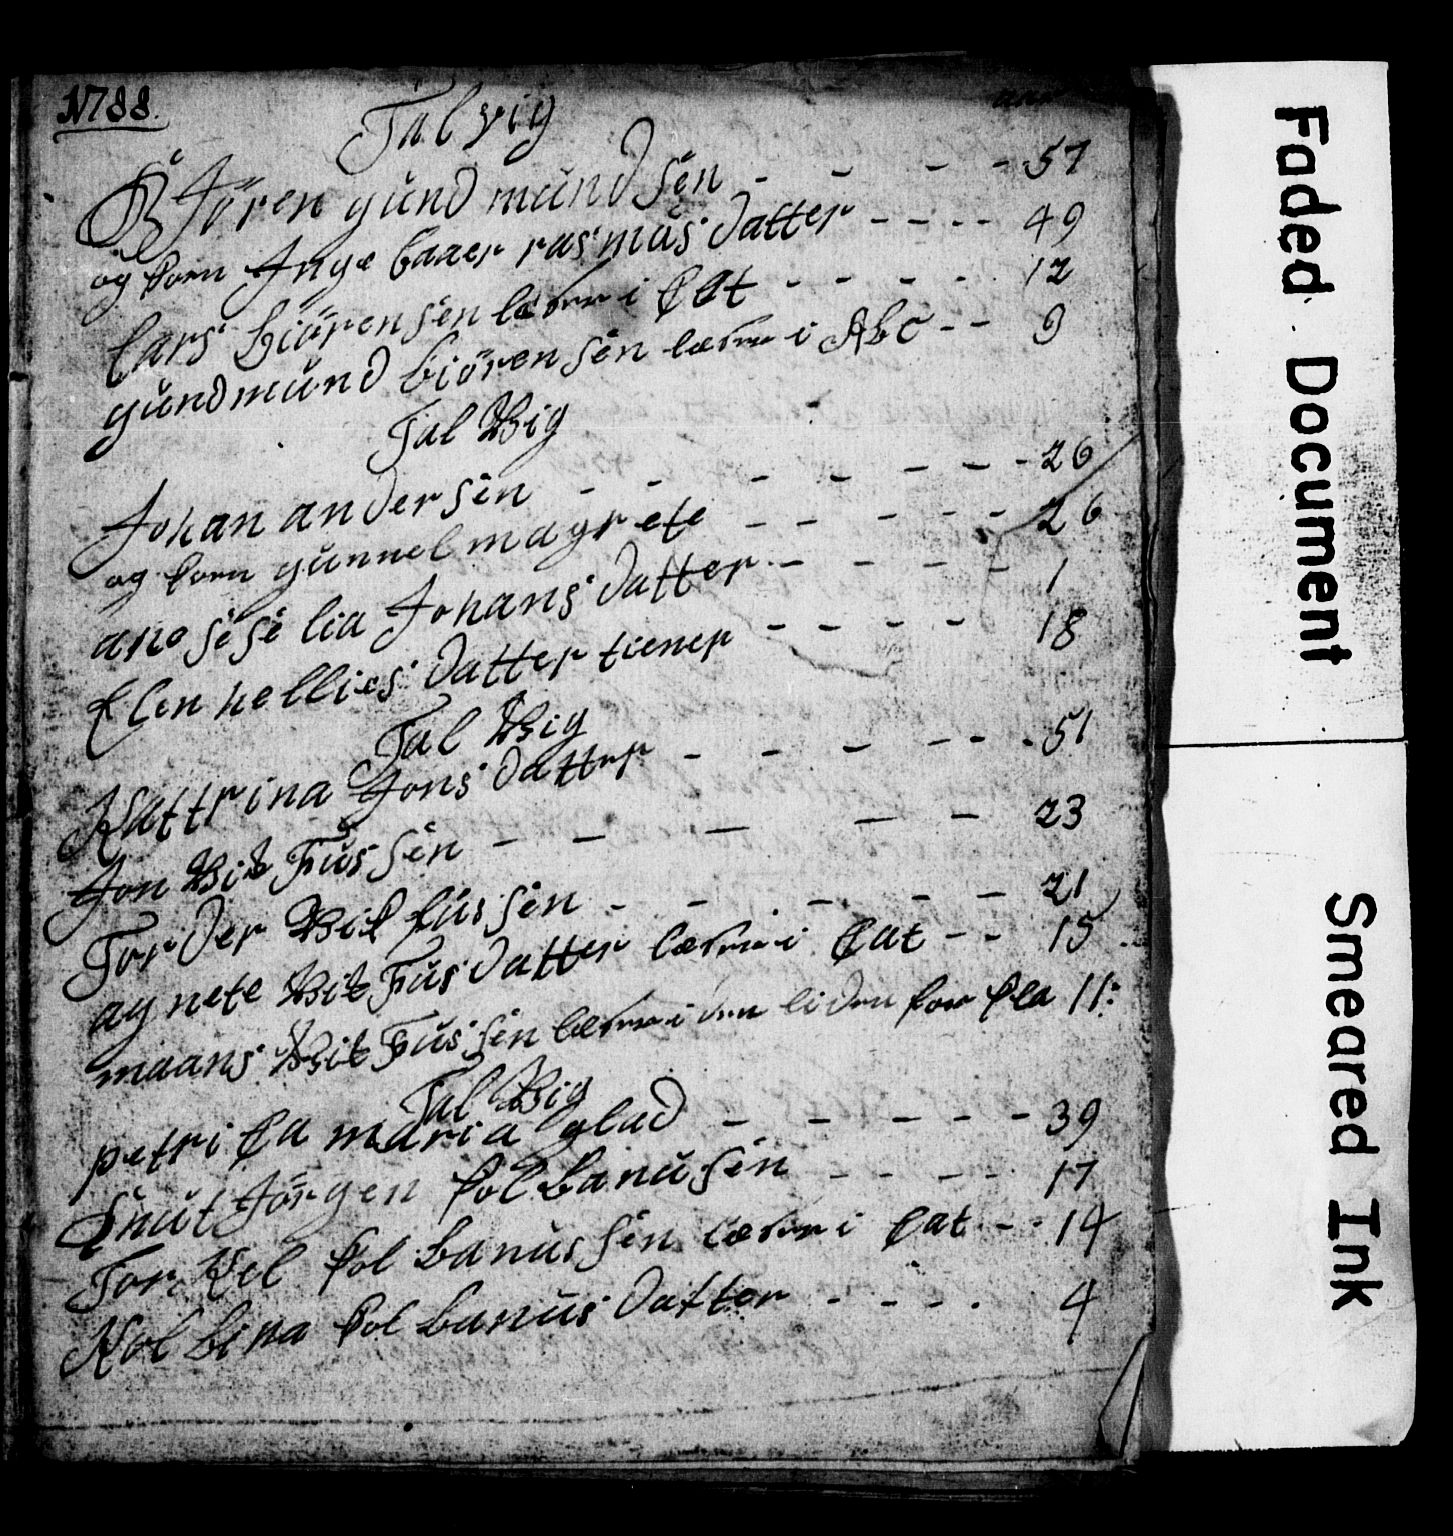 1788.
Talvig
aar
BJören gundmundsen - - - - 57
og kom Inge baaer rasmusdatter - - - - 49
lars biörensen læser i Cat - - - - 12
gundmund biörensen læser i Abc - - 9
Tal Wig
Johan andersen - - - - - - - 26
og kom gunnel magrete - - - - - 26
ane sesse lia Johans datter - - - - 1
Elen hellies datter tiener - - - - 18
Tal Wig
Kattrina Jons datter - - - - - - 51
Jon Wit Fussen - - - - - 23
Torder Wit fussen - - - - - 21
agnete Wit Fusdatter læser i Cat - - 15
maans Wit Fussen læser i den liden for Cla 11:
Tal Wig
petrica maria glad - - - - - 39
Knut Jörgen Kolbanusen - - - - 17
Torkel Kolbanussen læser i Cat - - 14
Kolbina Kolbanus datter - - - - 4
Faded Document
Smeared Ink